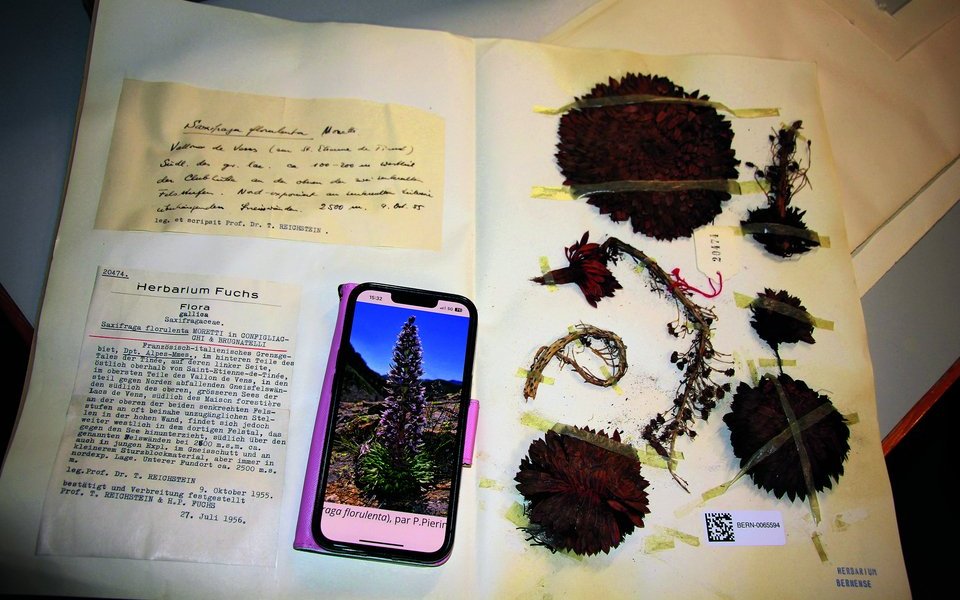 Saxifraga florulenta Moretti
Vallon de Vens (sur St. Etienne de Tinée)
Südl. des gr. lac. ca 100-200 m westlich
der Clubhütte an der oberen der zwei senkrechten
Felsstufen. Nord-exponiert an senkrechten bis
überhängenden Gneiswänden. 2500 m. 9. Oct. 55
leg. et scripsit Prof. Dr. T. REICHSTEIN.
20474.
Herbarium Fuchs
Flora
gallica
Saxifragaceae.
Saxifraga florulenta MORETTI in CONFIGLIAC-
CHI & BRUGNATELLI
Französisch-italienisches Grenzge-
biet, Dpt. Alpes-Mmes., im hinteren Teile des
Tales der Tinée, auf deren linker Seite,
östlich oberhalb von Saint-Etienne-de-Tinée,
im obersten Teile des Vallon de Vens, in den
steil gegen Norden abfallenden Gneisfelswän-
den südlich des oberen, grösseren Sees der
Lacs de Vens, südlich des Maison forestière
an der oberen der beiden senkrechten Fels-
stufen an oft beinahe unzugänglichen Stel-
len in der hohen Wand, findet sich jedoch
weiter westlich in dem dortigen Felstal, das
gegen den See hinunterzieht, südlich über den
genannten Felswänden bei 2600 m.s.m. ca.
auch in jungen Expl. im Gneisschutt und an
kleinerem Sturzblockmaterial, aber immer in
nordexp. Lage. Unterer Fundort ca. 2500 m.s.
m.
leg. Prof. Dr. T. REICHSTEIN
9. Oktober 1955.
bestätigt und Verbreitung festgestellt
Prof. T. REICHSTEIN & H.P. FUCHS
27. Juli 1956.
15:32
5G
raga florulenta), par P.Pierin
20474
BERN-0065594
HERBARIUM
BERNENSE